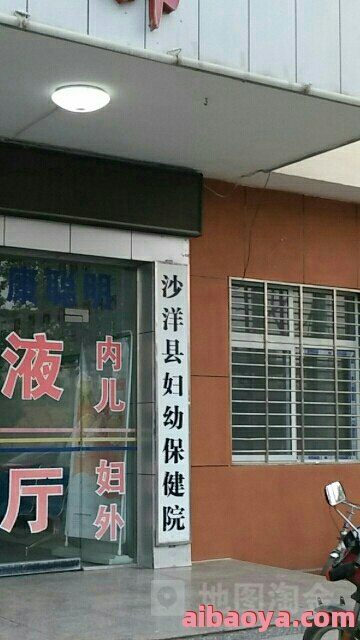 沙洋县妇幼保健院
液
厅
内儿
妇外
地图淘金
aibaoya.com